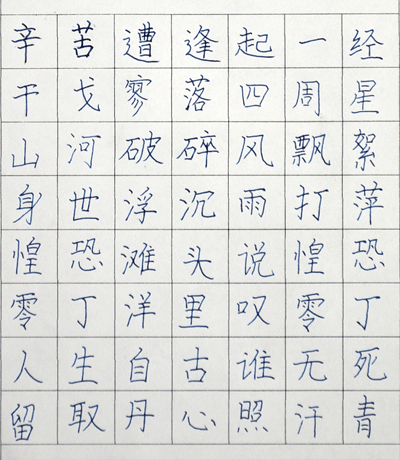 辛苦遭逢起一经
干戈寥落四周星
山河破碎风飘絮
身世浮沉雨打萍
惶恐滩头说惶恐
零丁洋里叹零丁
人生自古谁无死
留取丹心照汗青